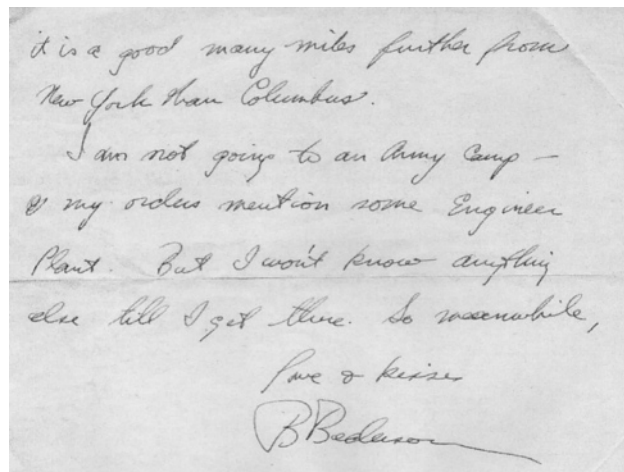 it is a good many miles further from
New York than Columbus.
I am not going to an Army Camp –
& my orders mention some Engineer
Plant. But I won't know anything
else till I get there. So meanwhile,
Love & kisses
B Bederson